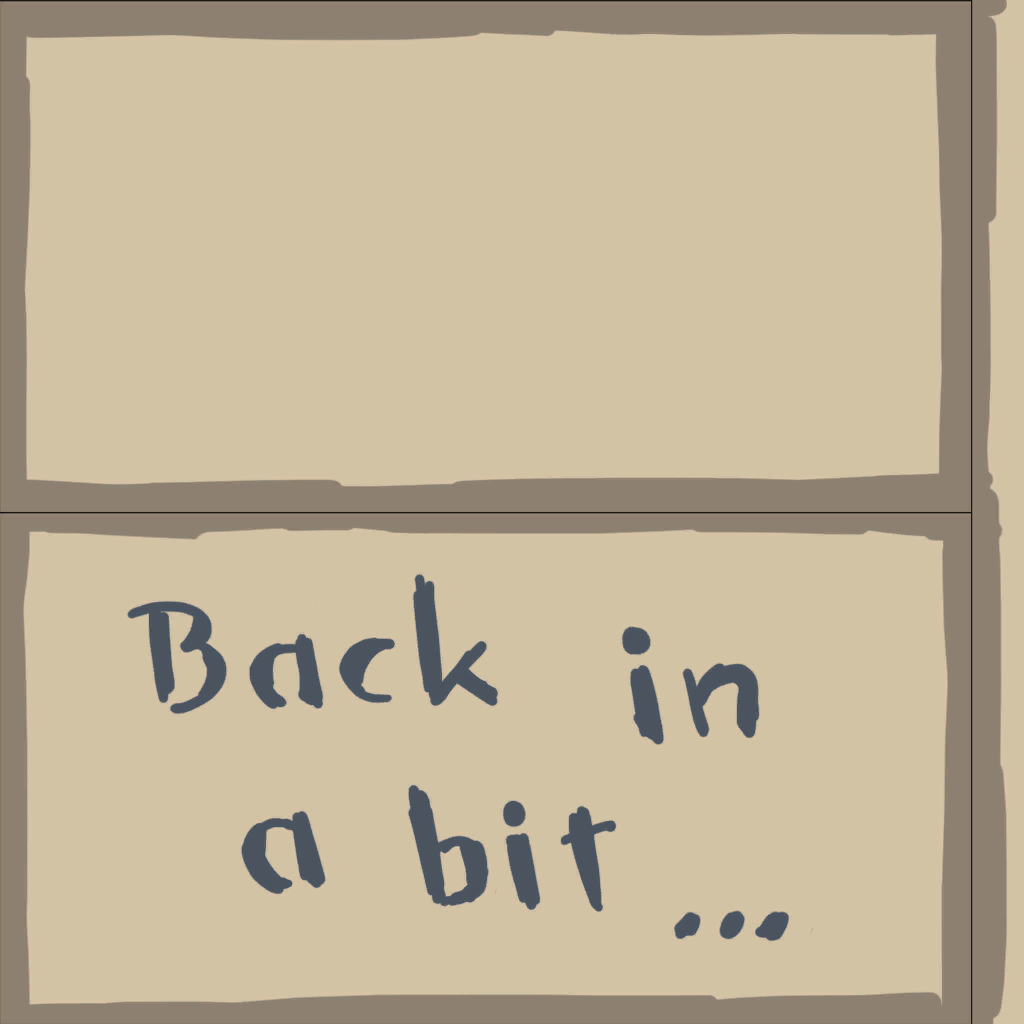 Back in
a bit...